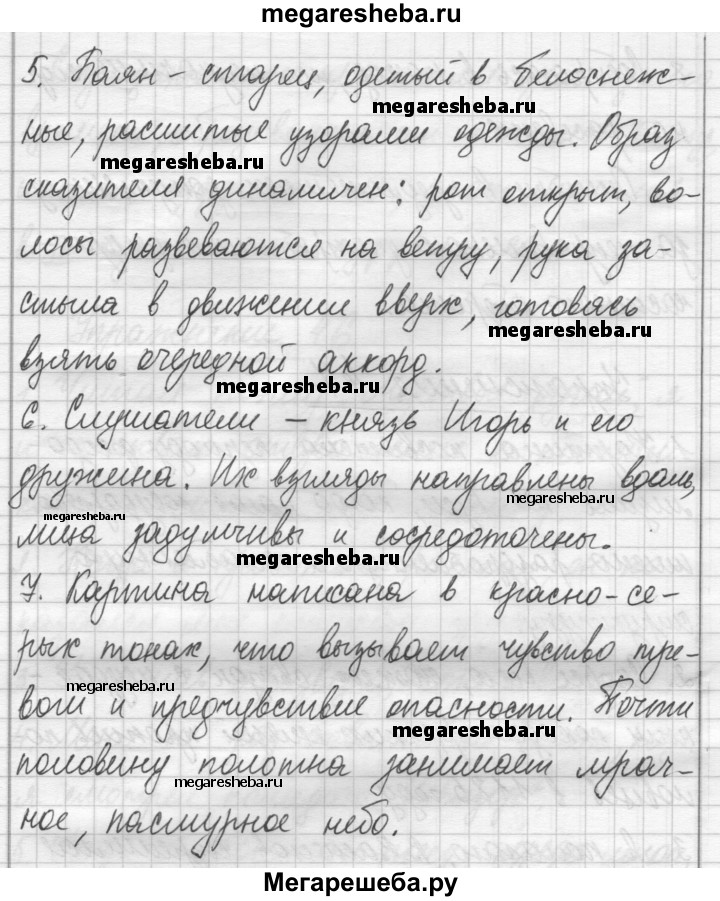 megaresheba.ru
5. Баян – старец, одетый в белоснеж-
megaresheba.ru
ные, расшитые узорами одежды. Образ
megaresheba.ru
сказителя динамичен: рот открыт, во-
лосы развеваются на ветру, рука за-
стыла в движении вверх, готовясь
megaresheba.ru
взять очередной аккорд.
megaresheba.ru
6. Слушатели – князь Игорь и его
дружина. Их взгляды направлены вдаль,
megaresheba.ru
megaresheba.ru
лица задумчивы и сосредоточены.
megaresheba.ru
7. Картина написана в красно-се-
рых тонах, что вызывает чувство тре-
megaresheba.ru
воги и предчувствие опасности. Почти
megaresheba.ru
половину полотна занимает мрач-
megaresheba.ru
ное, пасмурное небо.
Мегарешеба.ру